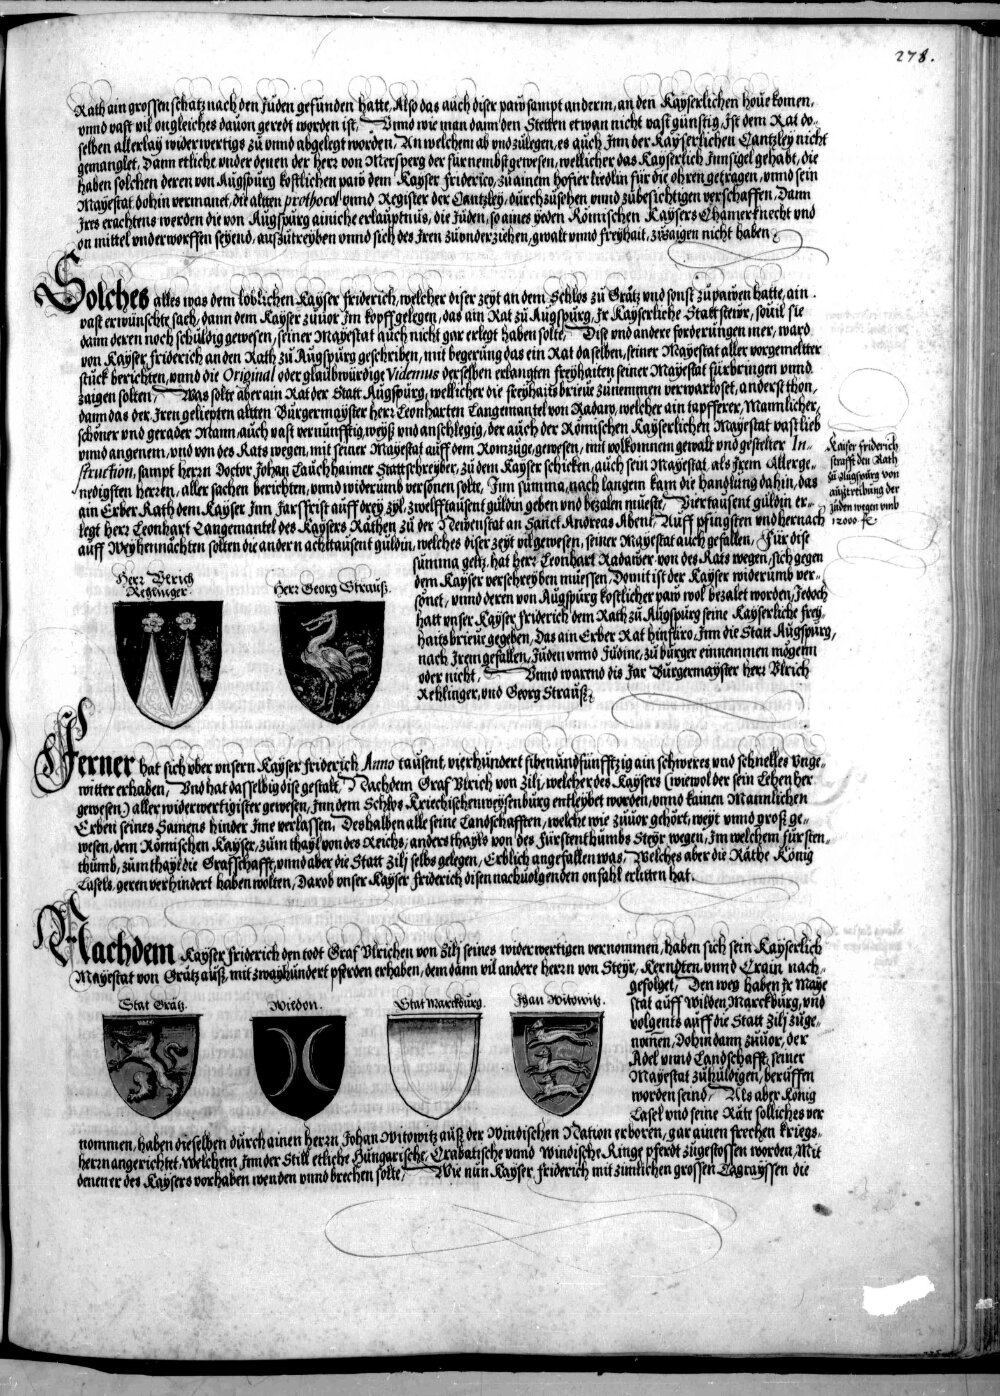 278.
Rath ain grossen schatz nach den Juden gefunden hatte, Also das auch diser paw sampt anderm, an den Kayserlichen houe komen,
vnnd vast vil ongleiches dauon geredt worden ist, Vnnd wie man dann den Stetten etwan nicht vast günstig, Ist dem Rat do-
selben allerlay widerwertigs zu vnnd abgelegt worden, An welchem ab vnd zulegen, es auch Inn der Kayserlichen Cantzley nicht
gemanglet, Dann etliche vnder denen der herz von Mersperg der fürnembst gewesen, wellicher das Kayserlich Innsigel gehabt, die
haben solchen deren von Augspurg kostlichen paw dem Kayser friderico, zu ainem hofier liedlin für die ohren getragen, vnnd sein
Mayestat dohin vermanet, die altten prothocol vnnd Register der Cantzley, durchzusehen vnnd zubesichtigen verschaffen, Dann
Ires erachtens werden die von Augspurg ainiche erlauptnus, die Juden, so aines yeden Römischen Kaysers Chamerknecht vnd
on mittel vnderworffen seyend, auszutreyben vnnd sich des Iren zu vnderziehen, gwalt vnnd freyhait, zwaigen nicht haben
Solches alles was dem loblichen Kayser friderich, welcher diser zeyt an dem Schlos zu Grätz vnd sonst zu pawen hatte, ain
vast erwünschte sach, dann dem Kayser zuuor Im kopff gelegen, das ain Rat zu Augspurg, Ir Kayserliche Stattstewr, souil sie
dann deren noch schuldig gewesen, seiner Mayestat auch nicht gar erlegt haben solte, Dise vnd andere forderungen mer, ward
von Kayser friderich an den Rath zu Augspurg geschriben, mit begerung das ein Rat daselben, seiner Mayestat aller vorgemeltter
stuck berichten, vnnd die Original oder glaubwürdige Vidimus derselben erlangten freyhaiten seiner Mayestat fürbringen vnnd
zaigen solten, Was solte aber ain Rat der Statt Augspurg, wellicher die freyhaits brieue zunemmen verwarloset, anderst thon,
dann das der Iren geliepten altten Burgermayster herz Leonharten Langemantel von Radaw, welcher ain tapfferer, Mannlicher,
schöner vnd gerader Mann, auch vast vernünfftig, weyß vnd anschlegig, der auch der Römischen Kayserlichen Mayestat vast lieb
vnnd angenem, vnd von des Rats wegen, mit seiner Mayestat auff dem Romzuge, gewesen, mit volkomnem gewalt vnd gestelter In-
struction, sampt herzn Doctor Johan Lauchhaimer Stattschreyber, zu dem Kayser schicken, auch sein Mayestat als Irem Allerge-
nedigsten herzen, aller sachen berichten, vnnd widerumb versönen solte, Inn summa, nach langem kam die handlung dahin, das
ain Erber Rath dem Kayser Inn Jarssfrist auff drey zyl, zwelfftausent guldin geben vnd bezalen mueste, Viertausent guldin er-
legt herz Leonhart Langemantel des Kaysers Räthen zu der Newenstat an Sanct Andreas Abent, Auff pfingsten vnd hernach
auff Weyhennachten solten die andern achttausent guldin, welches diser zeyt vil gewesen, seiner Mayestat auch gefallen, Für dise
summa geltz, hat herz Leonhart Radawer von des Rats wegen, sich gegen
dem Kayser verschreyben müessen, Domit ist der Kayser widerumb ver-
sönet, vnnd deren von Augspurg kostlicher paw wol bezalet worden, Jedoch
hatt vnser Kayser friderich dem Rath zu Augspurg seine Kayserliche frey-
haits brieue gegeben, Das ain Erber Rat hinfüro, Inn die Statt Augspurg,
nach Irem gefallen, Juden vnnd Judine, zu burger einnemmen mögenn
oder nicht, Vnnd warend dis Jar Burgermayster herz Vlrich
Rehlinger, vnd Georg Strauß,
Kaiser friderich
strafft den Rath
zu Augspurg von
außtreibung der
Juden wegen vmb
12000 fl.
Herr Vlrich
Rehlinger.
Herr Georg Strauß.
Ferner hat sich vber vnsern Kayser friderich Anno tausent, vierhundert sibenundfünfftzig ain schweres vnd schnelles Unge-
witter erhaben, Vnd hat dasselbig dise gestalt, Nachdem Graf Vlrich von Zilj, welcher des Kaysers (wiewol der sein Lehenher
gewesen) aller widerwertigister gewesen, Inn dem Schlos Kriechischenweysenburg entleybet worden, vnnd kainen Mannlichen
Erben seines Samens hinder Ime verlassen, Deshalben alle seine Landschafften, welche wie zuuor gehört, weyt vnnd groß ge-
wesen, dem Römischen Kayser, zum thayl von des Reichs, anders thayls von des Fürstenthumbs Steyr wegen, Im welchem fürsten-
thumb, zum thayl die Grafschafft, vnnd aber die Statt Zilj selbs gelegen, Erblich angefallen was, Welches aber die Räthe König
Lasels, geren verhindert haben wolten, Darob vnser Kayser friderich disen nachuolgenden onfahl erlitten hat.
Nachdem Kayser friderich den todt Graf Vlrichen von Zilj seines widerwertigen vernommen, haben sich sein Kayserlich
Mayestat von Grätz auß, mit zwayhundert pferden erhaben, dem dann vil andere herzn von Steyr, Kerndten, vnnd Crain nach-
gefolget, Den weg haben Ir Maye
stat auff Wildon, Marckburg, vnd
volgents auff die Statt Zilj züge-
nomen, Dohin dann zuuor, der
Adel vnnd Landschafft, seiner
Mayestat zuhuldigen, beruffen
worden seind, Als aber König
Lasel vnd seine Räte solliches ver
Stat Grätz.
Wildon.
Stat Marckburg.
Jhan Witowitz.
nommen, haben dieselben durch ainen herzn Johan Witowitz auß der Windischen Nation erboren, gar ainen frechen kriegs-
herzn angerichtet, welchem Inn der Still etliche Hungarische, Crabatische vnnd Windische Ringe pferdt zugestossen worden, Mit
denen er des Kaysers vorhaben wenden vnnd brechen solte, Wie nun Kayser friderich mit zimlichen grossen Tagrayssen die